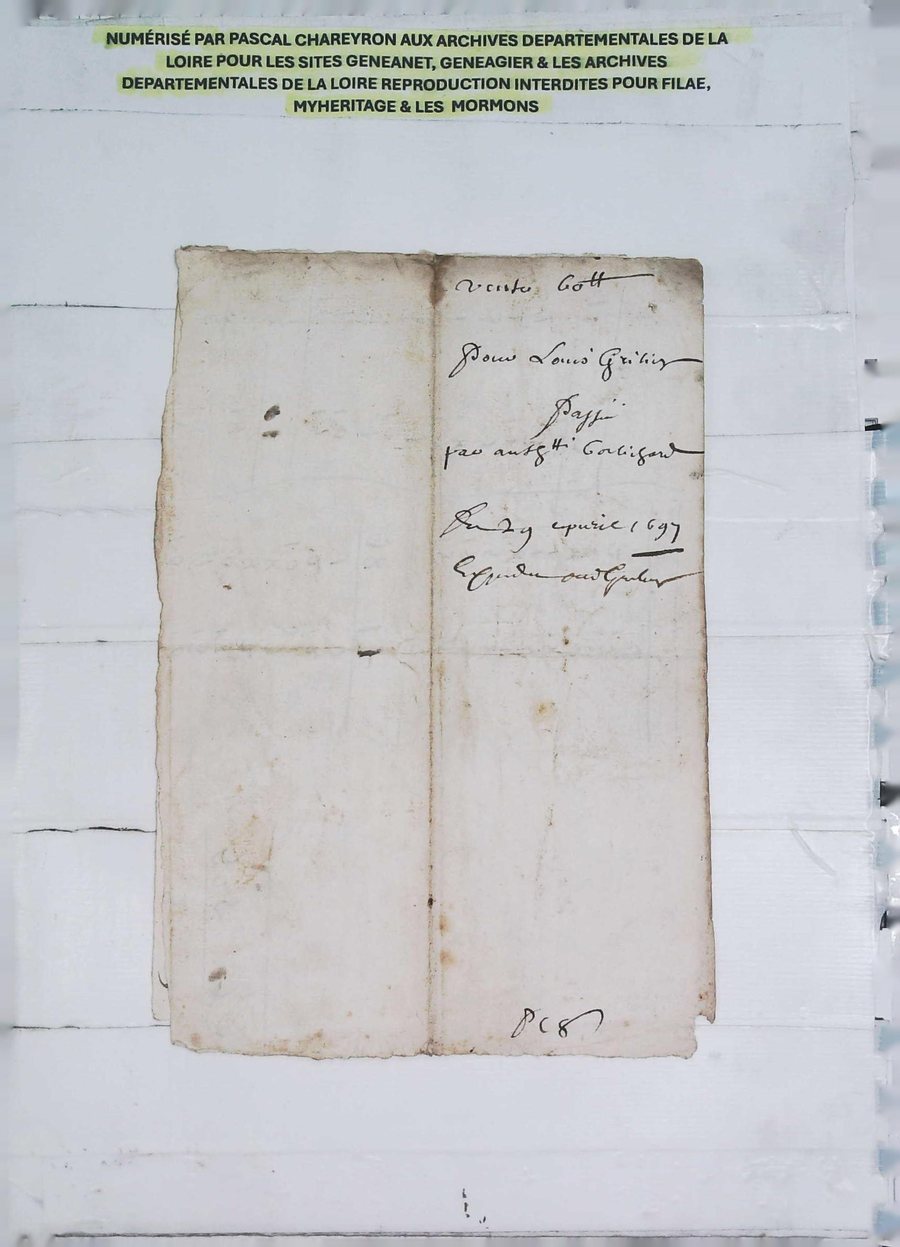 NUMÉRISÉ PAR PASCAL CHAREYRON AUX ARCHIVES DEPARTEMENTALES DE LA
LOIRE POUR LES SITES GENEANET, GENEAGIER & LES ARCHIVES
DEPARTEMENTALES DE LA LOIRE REPRODUCTION INTERDITES POUR FILAE,
MYHERITAGE & LES MORMONS
vente 60tt
Pour Louis
Passé
par
Du 29 apuril 1697